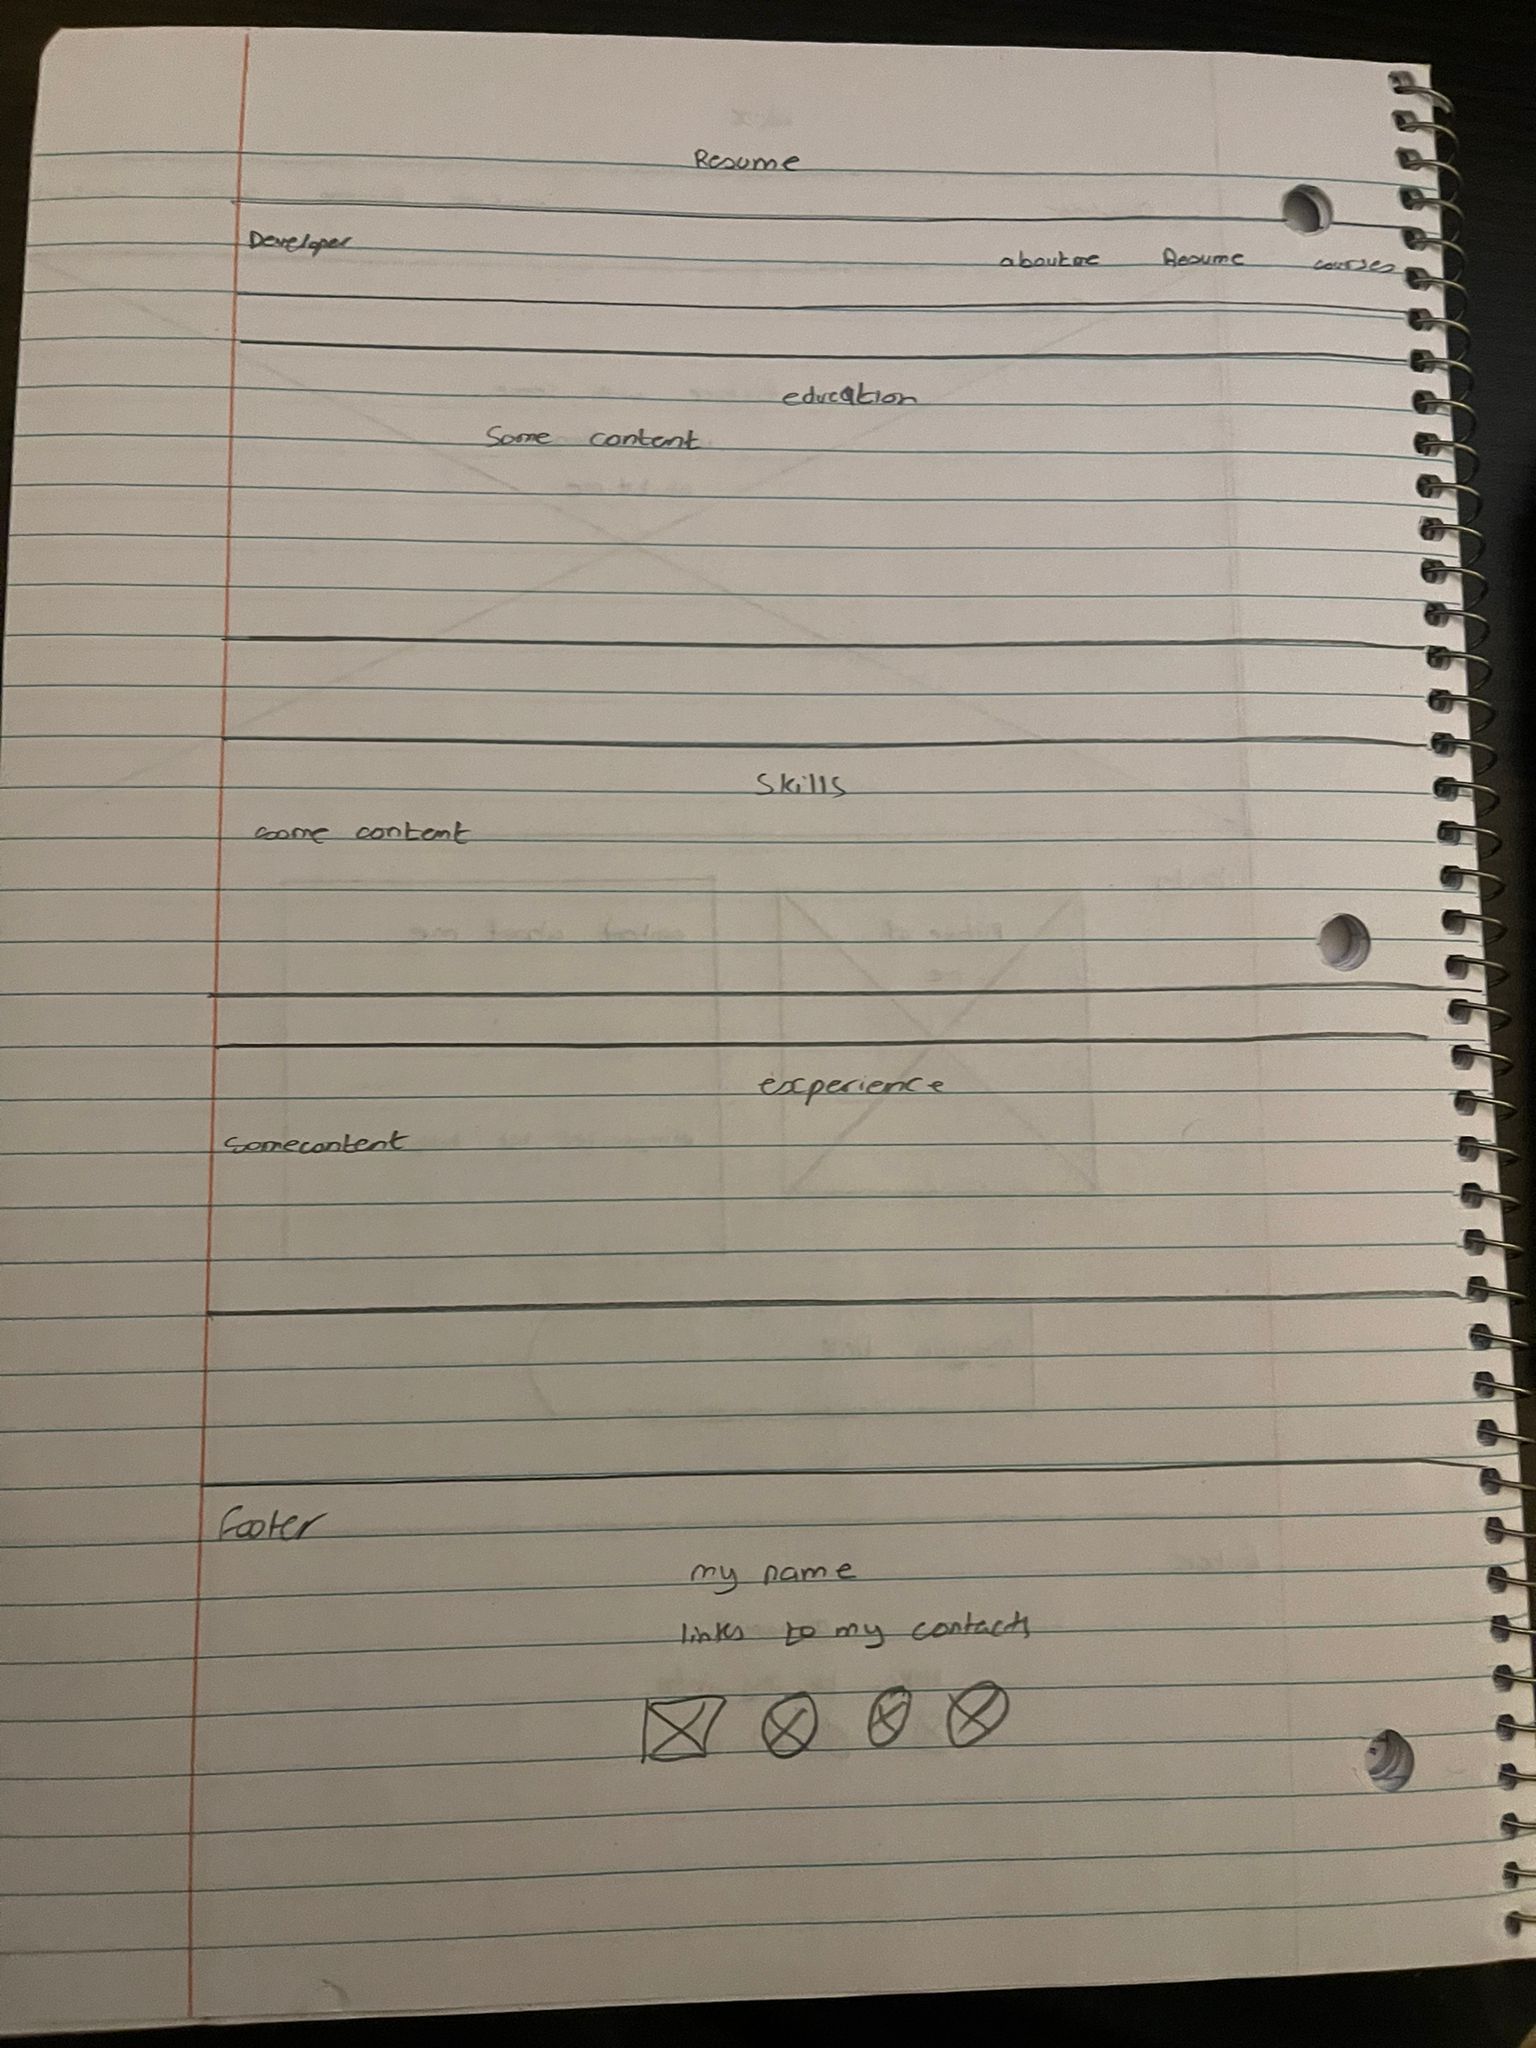 Resume
Developer aboutme Resume courses
education
Some content
Skills
some content
experience
somecontent
footer
my name
links to my contacts